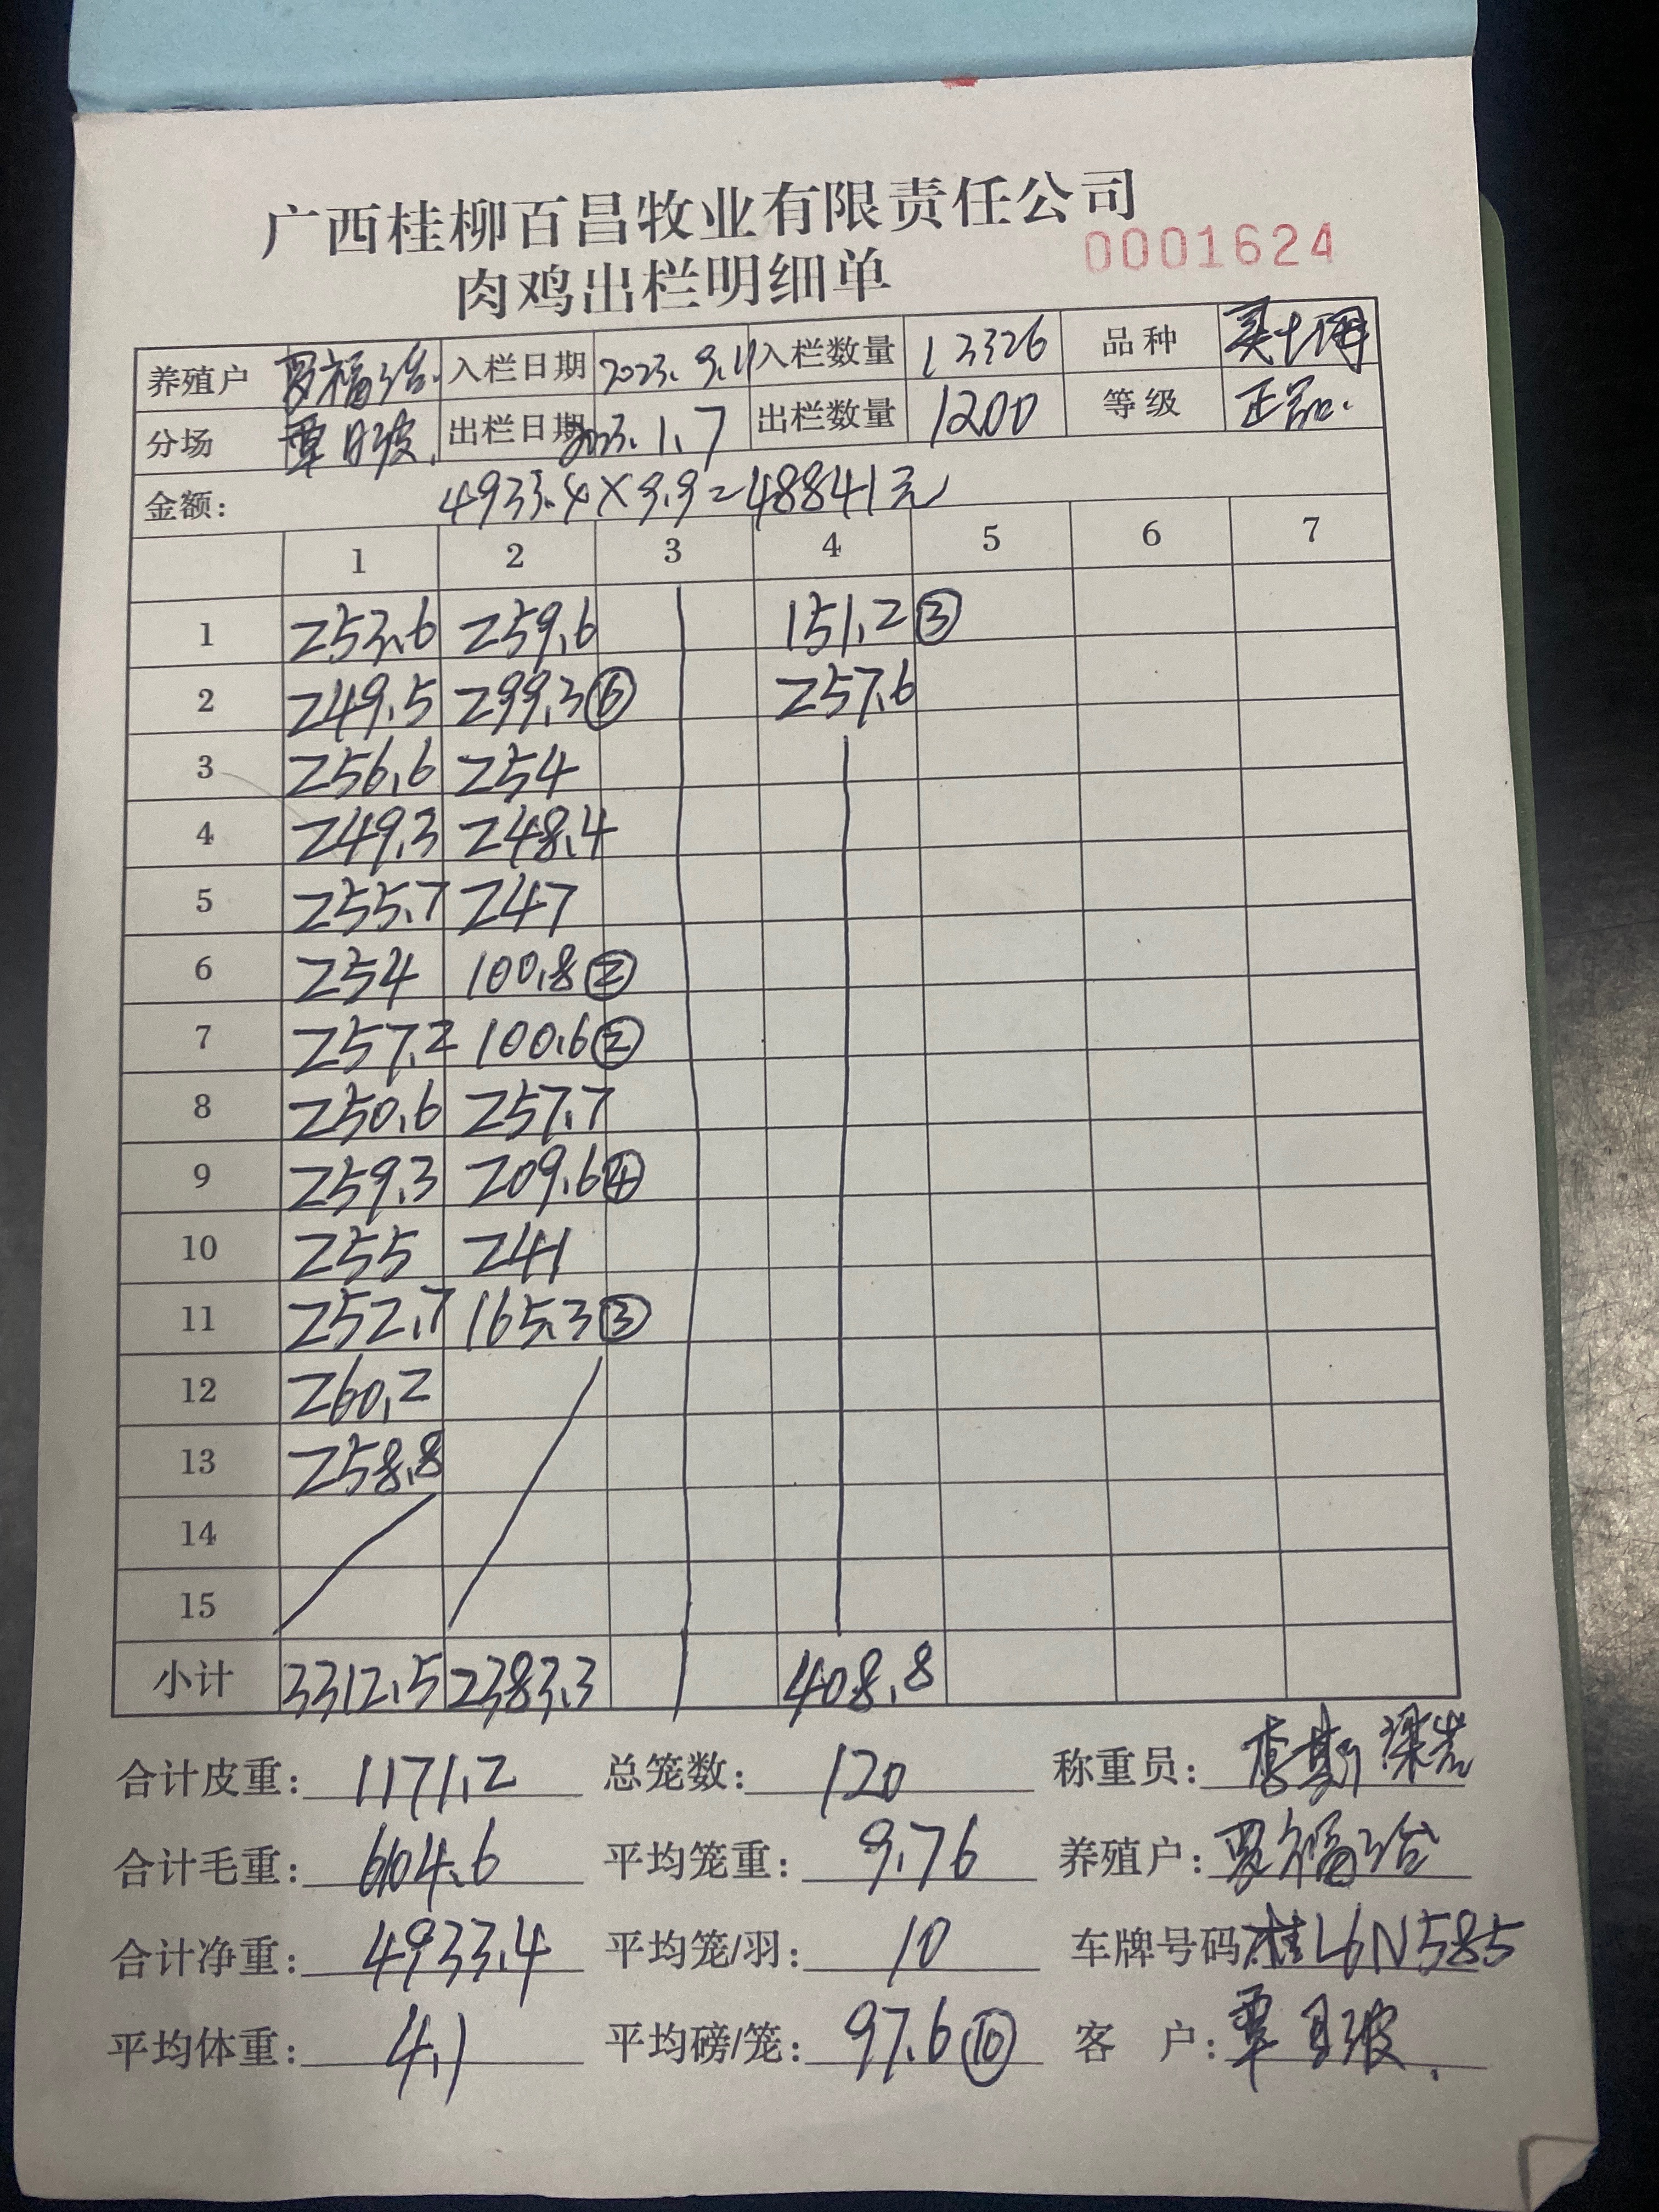 广西桂柳百昌牧业有限责任公司
0001624
肉鸡出栏明细单
养殖户 罗福 入栏日期 2023.9.11 入栏数量 13326 品种
分场 覃日波. 出栏日期 2023.1.7 出栏数量 1200 等级 正品.
金额: 4933.4×9.9=48841元
1 2 3 4 5 6 7
1 253.6 259.6 151.2③
2 249.5 299.3⑥ 257.6
3 256.6 254
4 249.3 248.4
5 255.7 247
6 254 100.8②
7 257.2 100.6②
8 250.6 257.7
9 259.3 209.6④
10 255 241
11 252.7 165.3③
12 260.2
13 258.8
14
15
小计 3312.5 2383.3 408.8
合计皮重: 1171.2 总笼数: 120 称重员:
合计毛重: 6104.6 平均笼重: 9.76 养殖户: 罗福
合计净重: 4933.4 平均笼/羽: 10 车牌号码: 桂L6N585
平均体重: 4.1 平均磅/笼: 97.6⑩ 客 户: 覃日波.